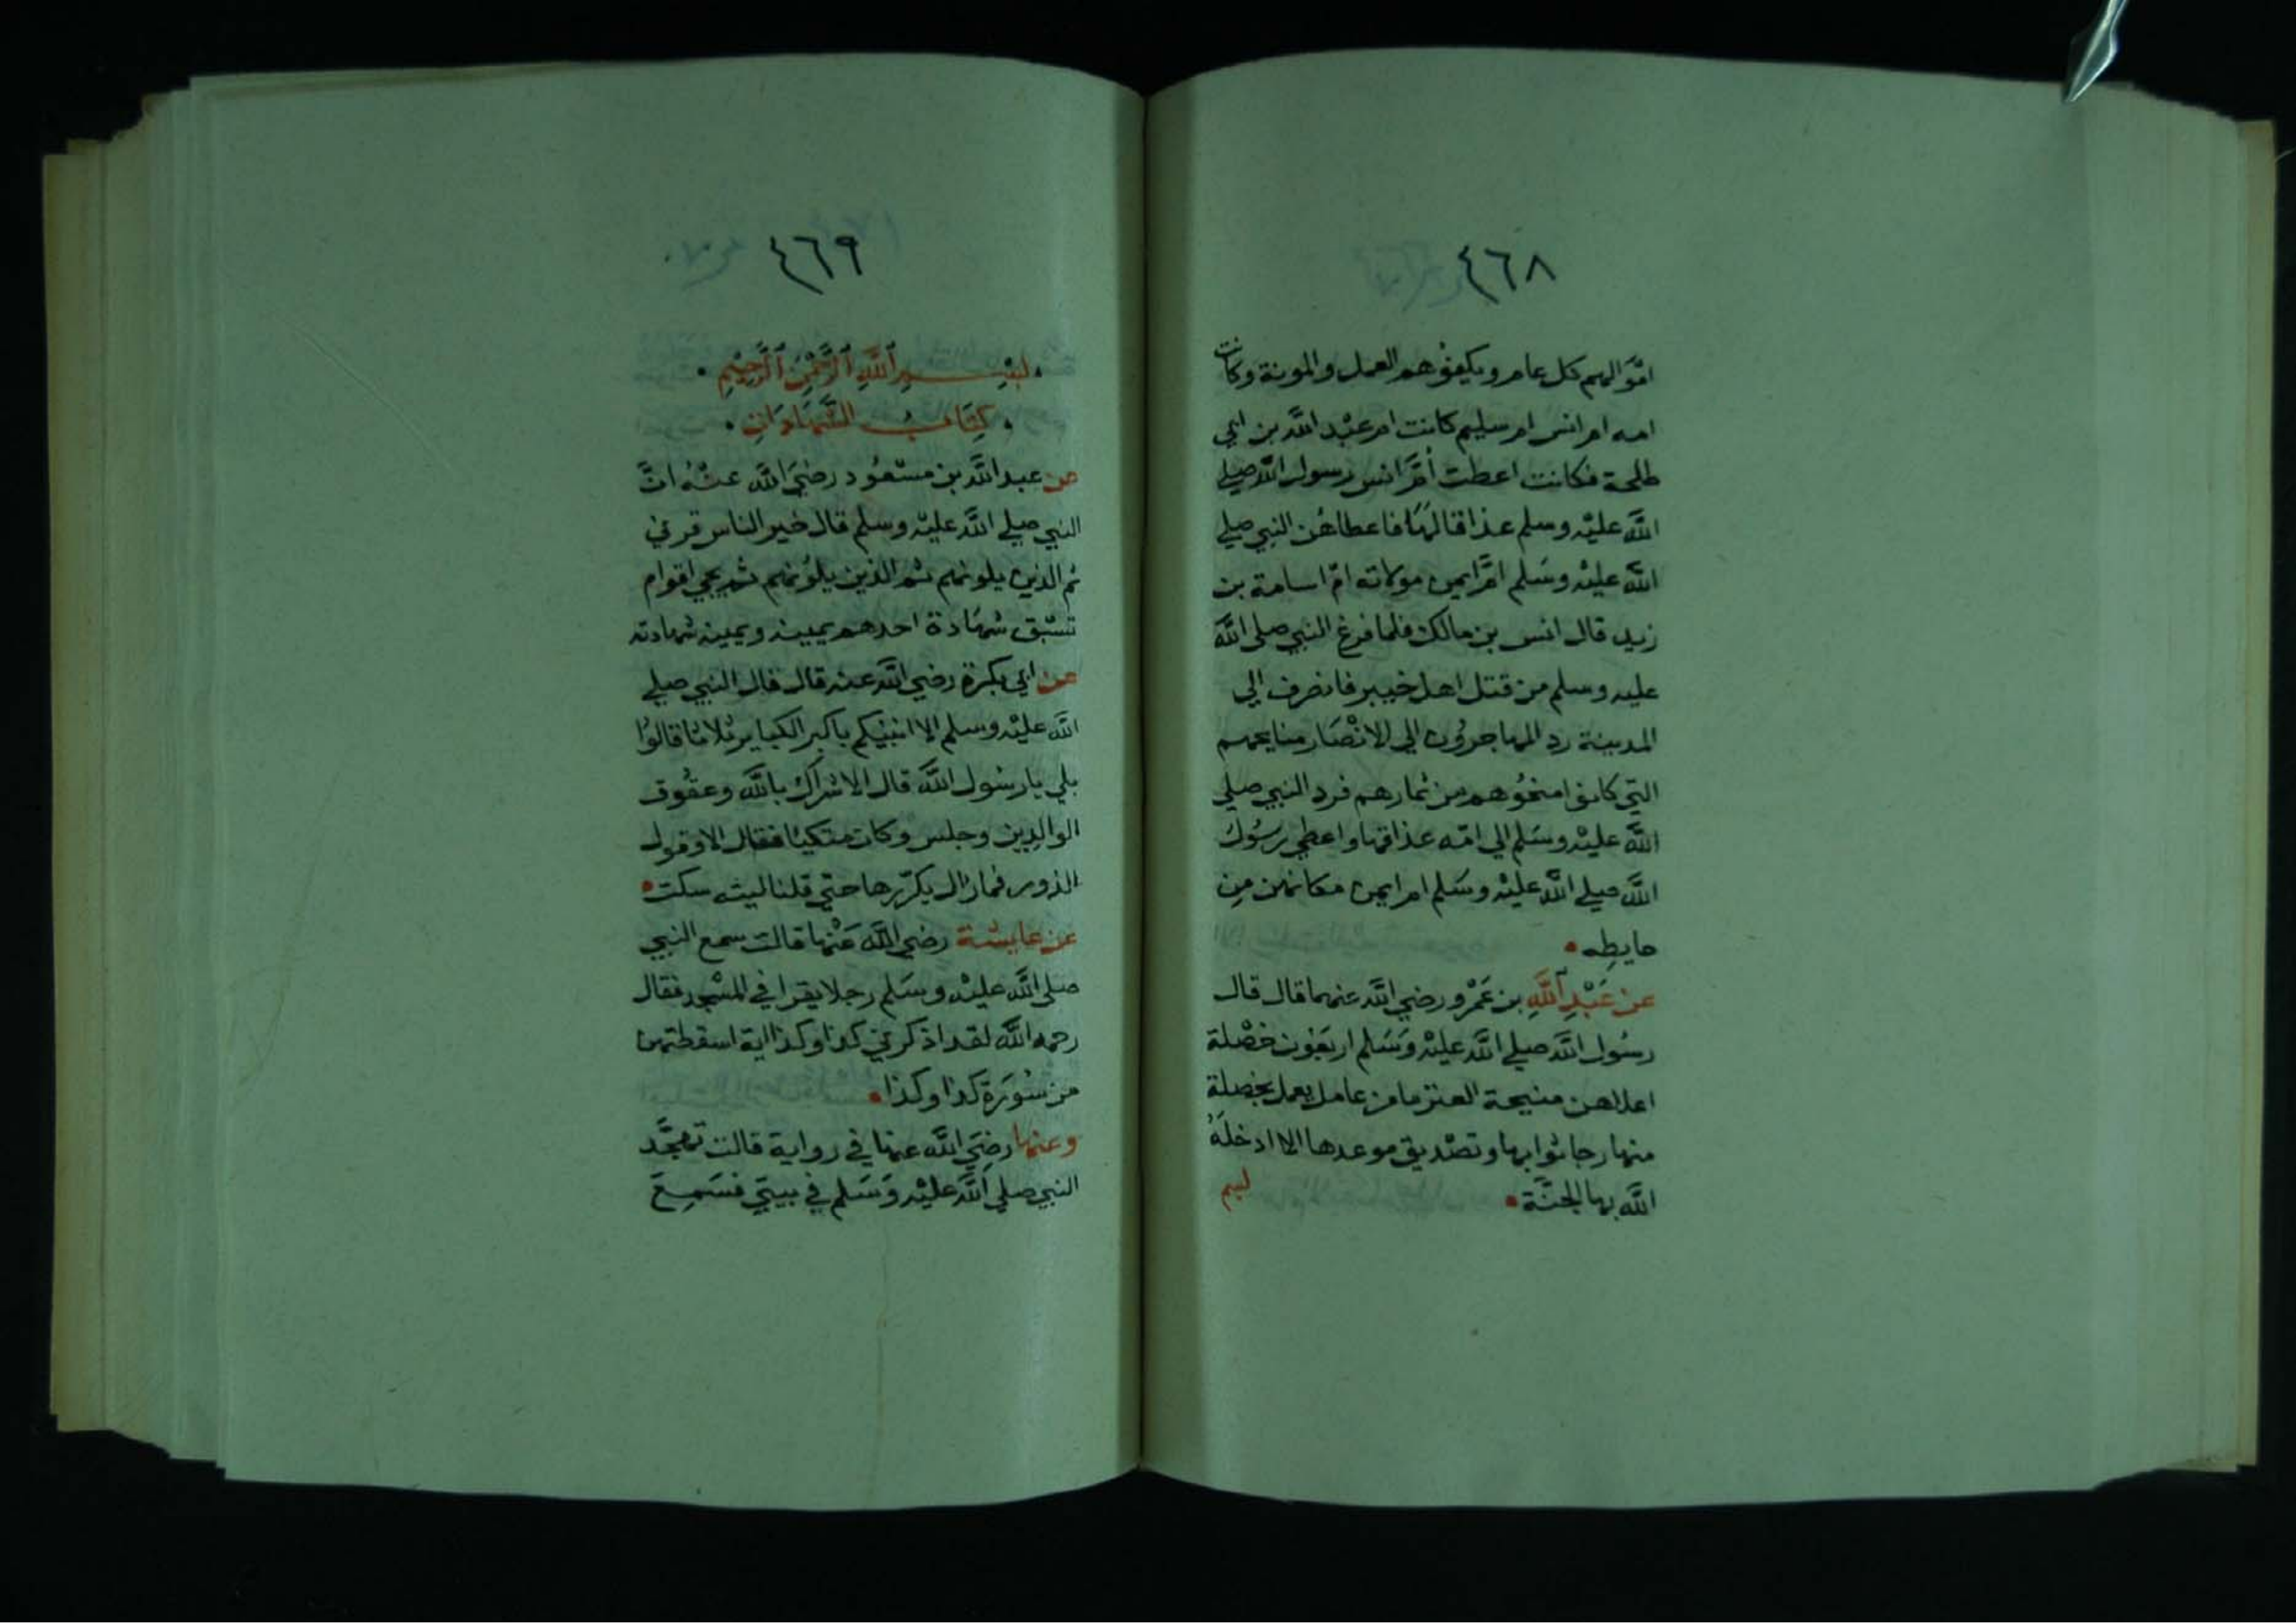 ٤٦٨
اموالهم كل عام ويكفوهم العمل والمونة وكانت
امه ام انس ام سليم كانت ام عبد الله بن ابي
طلحة فكانت اعطت أمّ انس رسول الله صلي
الله عليه وسلم عذاقا لها فاعطاهن النبي صلي
الله عليه وسلم امّ ايمن مولاته امّ اسامة بن
زيد قال انس بن مالك فلما فرغ النبي صلي الله
عليه وسلم من قتل اهل خيبر فانصرف الي
المدينة رد المهاجرون الي الانصار منايحهم
التي كانوا منحوهم من ثمارهم فرد النبي صلي
الله عليه وسلم الي امّه عذاقها واعطي رسول
الله صلي الله عليه وسلم ام ايمن مكانهن مِن
حايطِه
عن عَبْدِ اللَّهِ بن عَمْرو رضي الله عنهما قال قال
رسُول الله صلي الله عليه وَسَلم اربعُون خصْلة
اعلاهن منيحة العنز ما من عامل يعمل بخصلة
منها رجا ثوابها وتصْديق موعدها الا ادخلَهُ
الله بها الجنَّة
٤٦٩
بِسْمِ اللَّهِ الرَّحْمٰنِ الرَّحِيْمِ
كِتَابُ الشَّهَادَاتِ
عن عبد الله بن مسْعُود رضيَ الله عنْهُ انَّ
النبي صلي الله عليْه وسلم قال خير الناس قرني
ثم الذين يلونهم ثم الذين يلُونهم ثم يجي اقوام
تسْبق شهَادة احدهم يمينه ويمينه شهادته
عن ابي بكرة رضي الله عنه قال قال النبي صلي
الله عليْه وسلم الا انبيكم باكبر الكباير ثلاثا قالوُا
بلي يا رسُول الله قال الاشراك بالله وعقُوق
الوالدين وجلس وكان متكيًا فقال الا وقول
الزور فما زال يكرّرها حتي قلنا ليته سكت
عن عايشة رضي الله عَنْها قالت سمع النبي
صلي الله عليْه وسَلم رجلا يقرا في المسْجد فقال
رحمه الله لقد اذكرني كذا وكذا اية اسقطتهن
من سُورَة كذا وكذا
وعنها رضِيَ الله عنها في رواية قالت تهجَّد
النبي صلي الله عليْه وَسَلم في بيتي فسَمِعَ